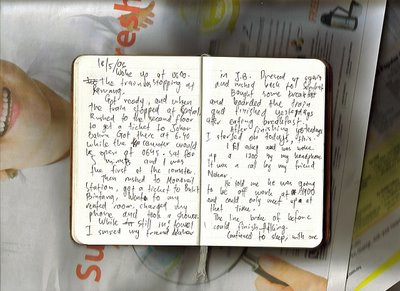 18/5/06
Woke up at 0530.
The train was stopping at
Kemang.
Got ready, and when
the train stopped at Sentral,
Rushed to the second floor
to get a ticket to Johor
Bahru. Got there at 6.40
while the counter would
be open at 0645. sat for
by myself and I was
the first at the counter.
Then rushed to Monorail
station, got a ticket to Bukit
Bintang, went to my
rented room, charged my
phone, and took a shower.
While still in towel
I smsed my friend Nahar
in J.B. Dressed up again
and rushed back to Sentral
Bought some breakfast
and boarded the train
and finished yesterday's
after eating breakfast.
After finishing yesterday's
I started on today's, this.
I fell asleep and was woken
up at 1200 by my handphone
It was a call by my friend
Nahar.
He told me he was going
to be off work at 1900
and could only meet up at
that time.
The line broke off before
I could finish talking.
Continued to sleep, with one
fresh
Su